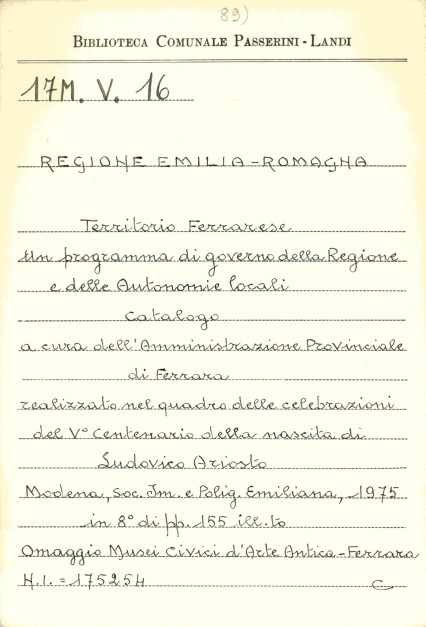 89)
BIBLIOTECA COMUNALE PASSERINI - LANDI
17M. V. 16
REGIONE EMILIA-ROMAGNA
Territorio Ferrarese
Un programma di governo della Regione
e delle Autonomie locali
Catalogo
a cura dell'Amministrazione Provinciale
di Ferrara
realizzato nel quadro delle celebrazioni
del V° Centenario della nascita di
Ludovico Ariosto
Modena, Soc. Im. e Polig. Emiliana, 1975
in 8° di pp. 155 ill.to
Omaggio Musei Civici d'Arte Antica-Ferrara
N.I. = 175254 C